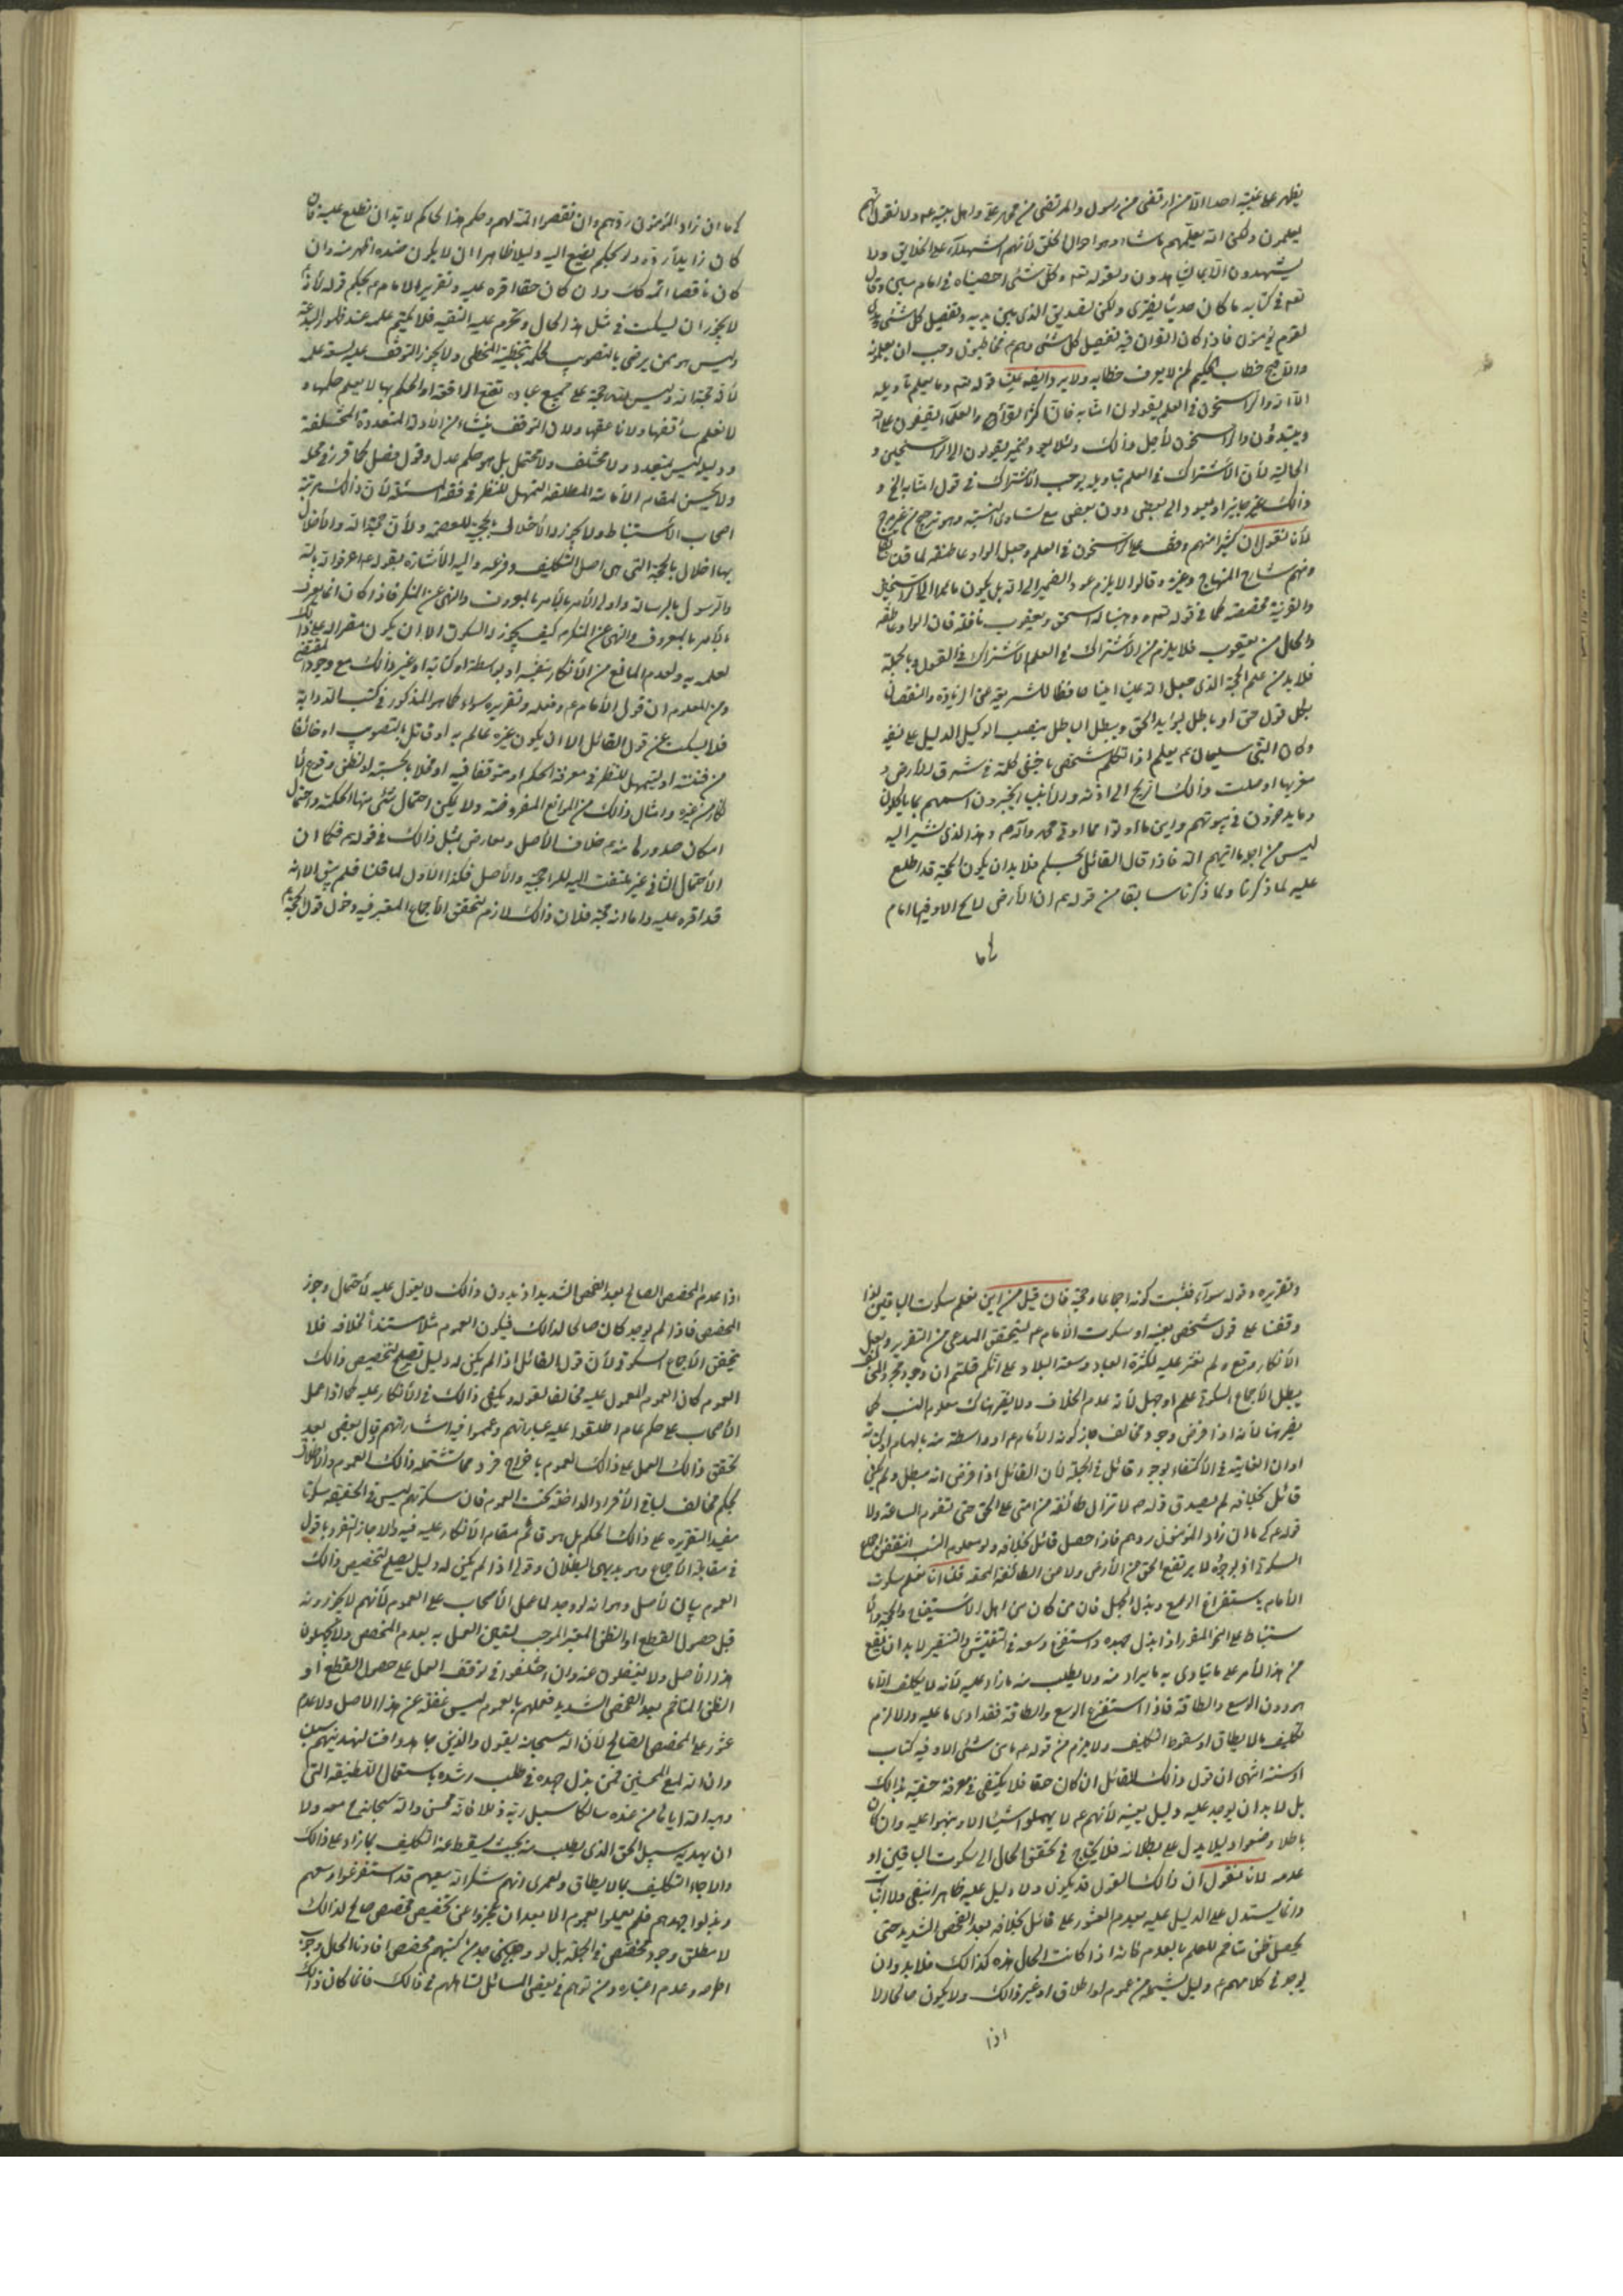 يظهر على غيبه احدا الا من ارتضى من رسول والمرتضى من محمد واهل بيته ولا نقول انهم
يعلمون ولكن الله يعلمهم ما شاء وهو احوال الخلق لأنهم الشهداء على الخلايق ولا
يشهدون الا بما يشاهدون ولقوله تعالى وكل شئ احصيناه في امام مبين وقال
تعالى في كتابه ما كان حديثا يفترى ولكن تصديق الذي بين يديه وتفصيل كل شئ وهدى
لقوم يؤمنون فاذا كان القران فيه تفصيل كل شئ وهم مخاطبون وجب ان يعلموه
والا قبح خطاب الحكيم لمن لا يعرف خطابه ولا يرد ايضا علينا قوله تعالى وما يعلم تأويله
الا الله والراسخون في العلم يقولون امنا به فان اكثر القراء والعلماء يقفون على الله
ويبتدؤن والراسخون لأجل ذالك ولئلا يعود ضمير يقولون الى الراسخين و
الجلالة لأن الأشتراك في العلم بتاويله يوجب الأشتراك في قول امنا به الخ و
ذالك غير جايز او يعود الى بعض دون بعض مع تساوى النسبة وهو ترجيح من غير مرجح
لأنا نقول ان كثيرا منهم وقف على الراسخون في العلم وجعل الواو عاطفة لما قلنا
ومنهم شارح المنهاج وغيره وقالوا لا يلزم عود الضمير الى الله بل يكون عائدا الى الراسخين
والقرينة مخصصة كما في قوله تعالى ووهبنا له اسحق ويعقوب نافلة فان الواو عاطفة
والحال من يعقوب فلا يلزم من الأشتراك في العلم الأشتراك في القول وبالجملة
فلا بد من علم الحجة الذي جعل الله عينا امينا حافظا للشريعة عن الزيادة والنقصان
بكل قول حق او باطل ليؤيد الحق ويبطل الباطل بنصب الوكيل الدليل على نفيه
وكان النبي سليمان يعلم اذا تكلم شخص باخفى كلمة في مشرق الأرض و
مغربها اوصلت ذالك الريح الى اذنه والأنبياء يخبرون اممهم بما ياكلون
وما يدخرون في بيوتهم واين ما اوتوا مما اوتي محمد وآله وهذا الذي نشير اليه
ليس من اجل ما اتيهم الله فاذا قال القائل بحكم فلا بد ان يكون الحجة قد اطلع
عليه لما ذكرنا ولما ذكرنا سابقا من قولهم ان الأرض لا تخلو الا وفيها امام
كما
كما ان زاد المؤمنون ردهم وان نقصوا اتمه لهم وحكم هذا الحاكم لا بد ان يطلع عليه فان
كان زايدا رده ولو بحكم يضع اليه دليلا ظاهرا ان لا يكون ضده اظهر منه وان
كان ناقصا اتمه كك وان كان حقا اقره عليه وتقرير الامام حكم قوله لأنه
لا يجوز ان يسكت في مثل هذا الحال وتحرم عليه التقية فلا يكتم علمه عند ظهور البدعة
وليس هو ممن يرضى بالتصويب لحكمه بتخطئة المخطى ولا يجوز التوقف عليه لسعة علمه
لأنه حجة الله وليس لله حجة على جميع عباده تقع الواقعة او الحكم بها لا يعلم حكمها و
لا نعلم سائقها ولا ناعقها ولأن التوقف ينشاء من الأدلة المتعددة المختلفة
ودليله ليس بمتعدد ولا مختلف ولا محتمل بل هو حكم عدل وقول فصل كما قرر في محله
ولا يحسن لمقام الأمامة المطلقة التمهل للنظر في فقه المسئلة لأن ذالك مرتبة
اصحاب الأستنباط ولا يجوز والأخلال بحجية للعصمة ولأن حجة الله والأخلال
بها اخلال بالحجة التي هي اصل التكليف وفرعه واليه الأشارة بقوله اعرفوا الله بالله
والرسول بالرسالة واولى الأمر بالأمر بالمعروف والنهى عن المنكر فاذا كان انما يعرف
بالأمر بالمعروف والنهى عن المنكر كيف يجوز السكوت الا ان يكون مقرا له على ذالك
لعلمه به ولعدم المانع من الأنكار بنفسه او بواسطة او كتابة او غير ذالك مع وجود المقتضى
ومن المعلوم ان قول الأمام وفعله وتقريره سواء كما هو المذكور في كتب الدراية
فلا يسكت عن قول القائل الا ان يكون غيره عالم به او قائل بالتصويب او خائفا
من فتنة او ليتمهل للنظر في معرفة الحكم او متوقفا فيه او مخلا بالحسبة او لظن وقوع الأ
نكار من غيره وامثال ذالك من الموانع المفروضة ولا يمكن احتمال شئ منها الحكمة واحتمال
امكان صدورها منه خلاف الأصل ومعارض بمثل ذالك في قولهم فكما ان
الأحتمال الثاني غير ملتفت اليه للراجحية والأصل فكذا الأول لما قلنا فلم يبق الا انه
قد اقره عليه واما انه حجة فلان ذالك لازم لتحقق الأجماع المعتبر فيه دخول قول الحجة
وتقريره وقوله سواء فثبت كونه اجماعا وحجة فان قيل من اين نعلم سكوت الباقين اذا
وقفنا على قول شخص بعينه او سكوت الأمام ليتحقق المدعى من التقرير ولعل
الأنكار وقع ولم نعثر عليه لكثرة العباد وسعة البلاد على انكم قلتم ان وجود مجرد المخالف
يبطل الأجماع السكوتي علم او جهل لأنه عدم الخلاف ولا يضر هناك معلوم النسب كما
يضر هنا لأنه اذا فرض وجود مخالف جاز كونه الأمام او واسطة منه بالهام او كتابة
او ان الغاية في الأكتفاء بوجود قائل في الجملة لأن القائل اذا فرض انه مبطل ولم يكن
قائل بخلافه لم يصدق قوله لا تزال طائفة من امتى على الحق حتى تقوم الساعة ولا
قوله كما ان زاد المؤمنون ردهم فاذا حصل قائل بخلافه ولو معلوم النسب انتقض الاجماع
السكوتي اذ بوجوده لا يرتفع الحق من الأرض ولا من الطائفة المحقة قلت انا نعلم سكوت
الأمام باستفراغ الوسع وبذل الجهد فان من كان من اهل الاستيضاح والحجة والأ
ستنباط على النحو المقرر اذا بذل جهده واستفرغ وسعه في التفتيش والتنقير لا بد ان يقع
من هذا الأمر على ما يتادى به ما يراد منه ولا يطلب منه ما زاد عليه لأنه لا يكلف الا ما
هو دون الوسع والطاقة فاذا استفرغ الوسع والطاقة فقد ادى ما عليه والا لزم
تكليف ما لا يطاق او سقوط التكليف ولا يلزم من قوله ما من شئ الا وفيه كتاب
او سنة انتهى ان قول ذالك القائل ان كان حقا فلا يكتفى في معرفة حقيته بذالك
بل لا بد ان يوجد عليه دليل بعينه لأنهم لا يهملوا شيئا الا ونبهوا عليه وان كان
باطلا وضعوا دليلا يدل على بطلانه فلا يحتاج في تحقق الحال الى سكوت الباقين او
عدمه لانا نقول ان ذالك القول قد يكون ولا دليل عليه ظاهرا بنفى ولا اثبات
وانما يستدل على الدليل عليه بعدم العثور على قائل بخلافه بعد الفحص الشديد حتى
يحصل ظن متاخم للعلم بالعدم فانه اذا كانت الحال هذه كذالك فلا بد وان
يوجد في كلامهم دليل يشمله من عموم او اطلاق او غير ذالك ولا يكون صالحا الا
اذا
اذا عدم المخصص الصالح بعد الفحص الشديد اذ بدون ذالك لا يعول عليه لأحتمال وجود
المخصص فاذا لم يوجد كان صالحا لذالك فيكون العموم مثلا مستندا لخلافه فلا
يتحقق الأجماع السكوتي ولأن قول القائل اذا لم يكن له دليل يصلح لتخصيص ذالك
العموم كان العموم المعمول عليه مخالفا لقوله ويكفى ذالك في الأنكار عليه كما اذا عمل
الأصحاب على حكم عام اطلقوا عليه عباراتهم وعمموا فيه اشاراتهم وقال بعض بعد
تحقق ذالك العمل على ذالك العموم باخراج فرد مما شتمله ذالك العموم والأطلاق
بحكم مخالف لباقى الأفراد الداخلة تحت العموم فان سكوتهم ليس في الحقيقة سكوتا
مفيدا لتقريره على ذالك الحكم بل هو قائم مقام الأنكار عليه فيه والا جاز التفرد بقول
في مقابلة الأجماع وهو بديهى البطلان وقولى اذا لم يكن له دليل يصلح لتخصيص ذالك
العموم بيان لأصل وهو انه لو وجد لما عمل الأصحاب على العموم لأنهم لا يجوزونه
قبل حصول القطع او الظن المعتبر الموجب لتعين العمل به بعدم المخصص ولا يجهلون
هذا الأصل ولا يغفلون عنه وان اختلفوا في توقف العمل على حصول القطع او
الظن المتاخم بعد الفحص الشديد فعملهم بالعموم ليس غفلة عن هذا الاصل ولا عدم
عثور على المخصص الصالح لأن الله سبحانه يقول والذين جاهدوا فينا لنهدينهم سبلنا
وان الله لمع المحسنين فمن بذل جهده في طلب رشده باستعمال اللطيفة التي
وهبه الله اياها من عنده سالكا سبيل ربه ذللا فانه محسن والله سبحانه مع معه ولا
ان يهديه سبيل الحق الذي يطلب منه بحيث يسقط عنه التكليف بما زاد على ذالك
والا جاء التكليف بما لا يطاق ولعمرى انهم شكر الله سعيهم قد استفرغوا وسعهم
وبذلوا جهدهم فلم يعملوا بعموم الا بعد ان عجزوا عن تخصيص مخصص صالح لذالك
لا مطلق وجود مخصص في الجملة بل لو وجد في كتبهم مخصص افادنا الحال وجوب
اطراحه وعدم اعتباره ومن توهم في بعض المسائل تساهلهم في ذالك فانما كان ذالك